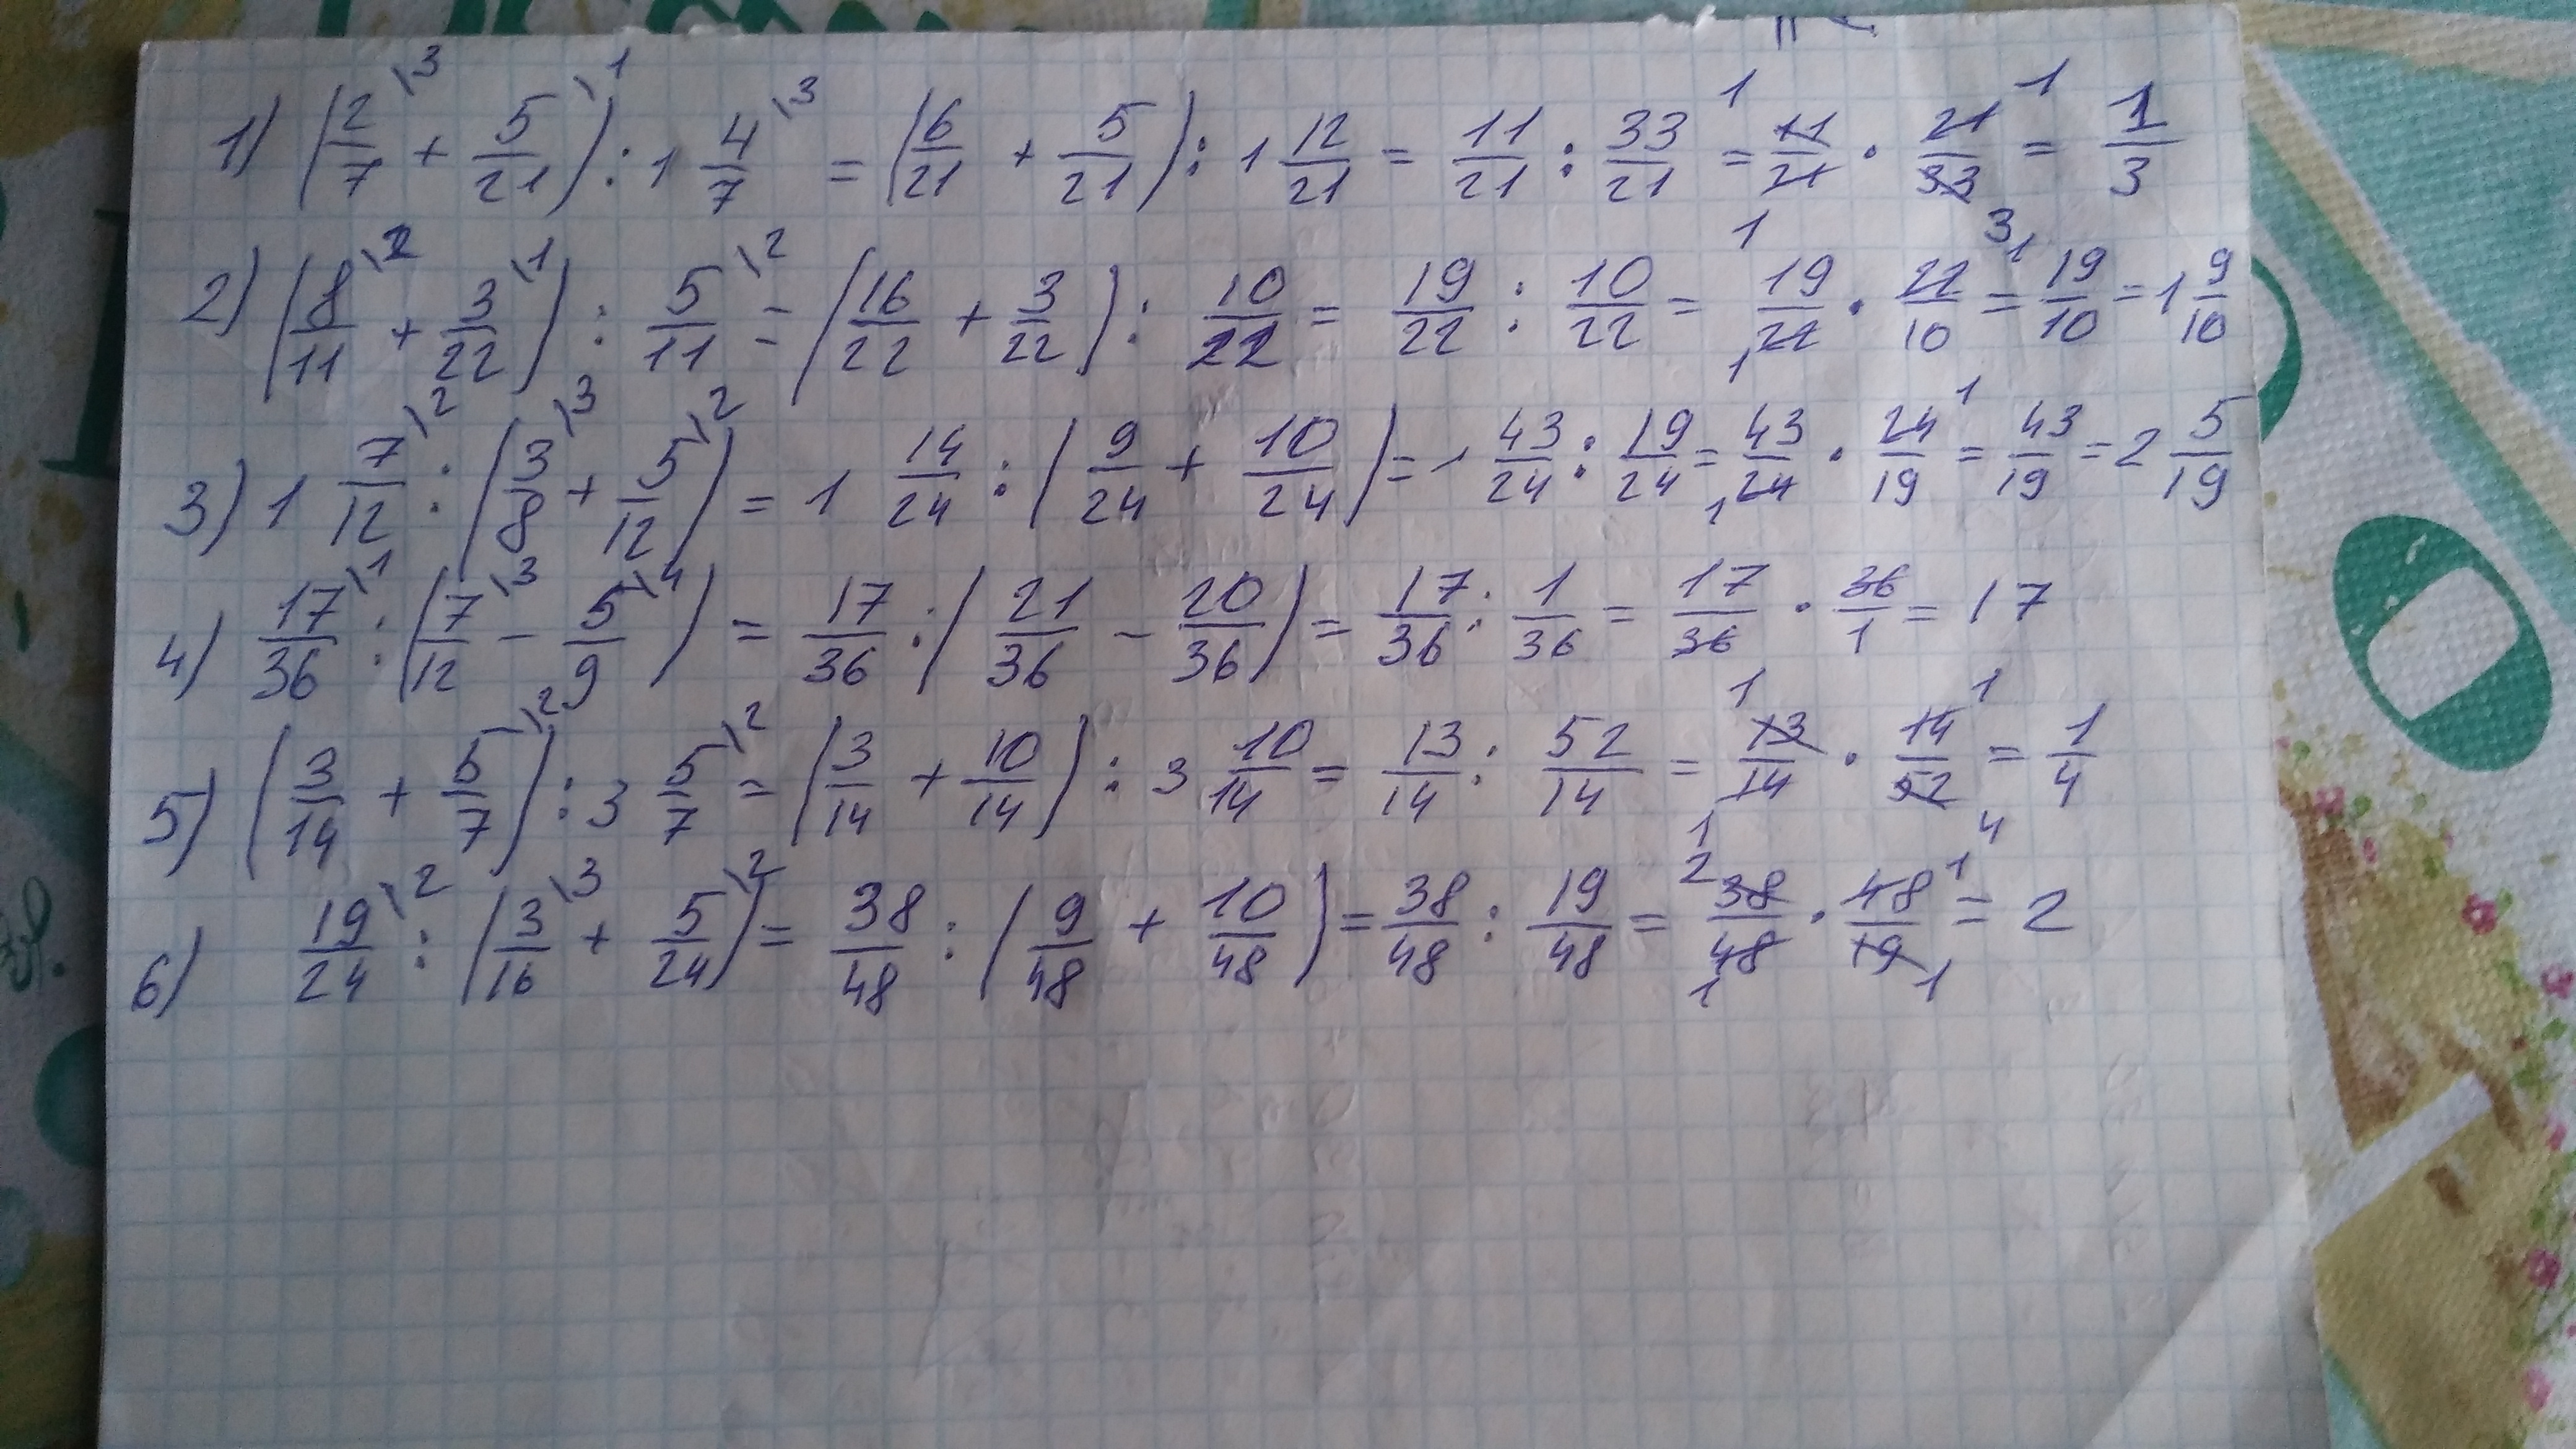 1) (2/7\3 + 5/21\1) : 1 4/7\3 = (6/21 + 5/21) : 1 12/21 = 11/21 : 33/21 = 11/21 1 · 21/33 1 3 = 1/3
2) (8/11\2 + 3/22\1) : 5/11\2 = (16/22 + 3/22) : 10/22 = 19/22 : 10/22 = 19/22 1 · 22/10 1 = 19/10 = 1 9/10
3) 1 7/12\2 : (3/8\3 + 5/12\2) = 1 14/24 : (9/24 + 10/24) = 1 43/24 : 19/24 = 43/24 1 · 24/19 1 = 43/19 = 2 5/19
4) 17/36\1 : (7/12\3 − 5/9\4) = 17/36 : (21/36 − 20/36) = 17/36 : 1/36 = 17/36 · 36/1 = 17
5) (3/14 + 5/7\2) : 3 5/7\2 = (3/14 + 10/14) : 3 10/14 = 13/14 : 52/14 = 13/14 1 1 · 14/52 1 4 = 1/4
6) 19/24\2 : (3/16\3 + 5/24\2) = 38/48 : (9/48 + 10/48) = 38/48 : 19/48 = 38/48 2 1 · 48/19 1 1 = 2